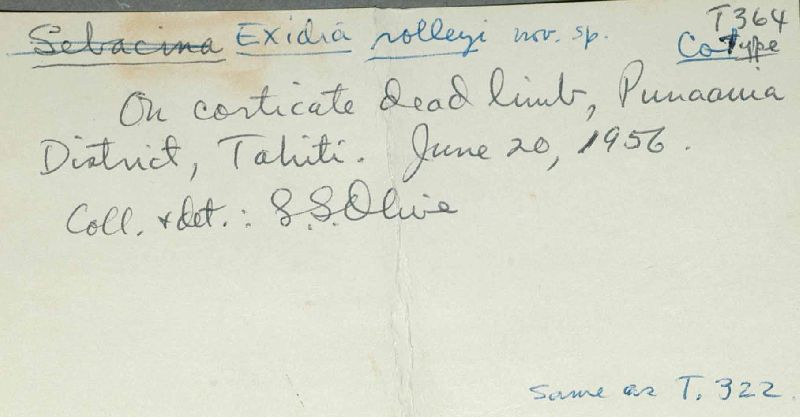 T364
Sebacina Exidia rolleyi nov. sp. Cotype
On corticate dead limb, Punaauia
District, Tahiti. June 20, 1956.
Coll. & det.: L.S. Olive
Same as T. 322.